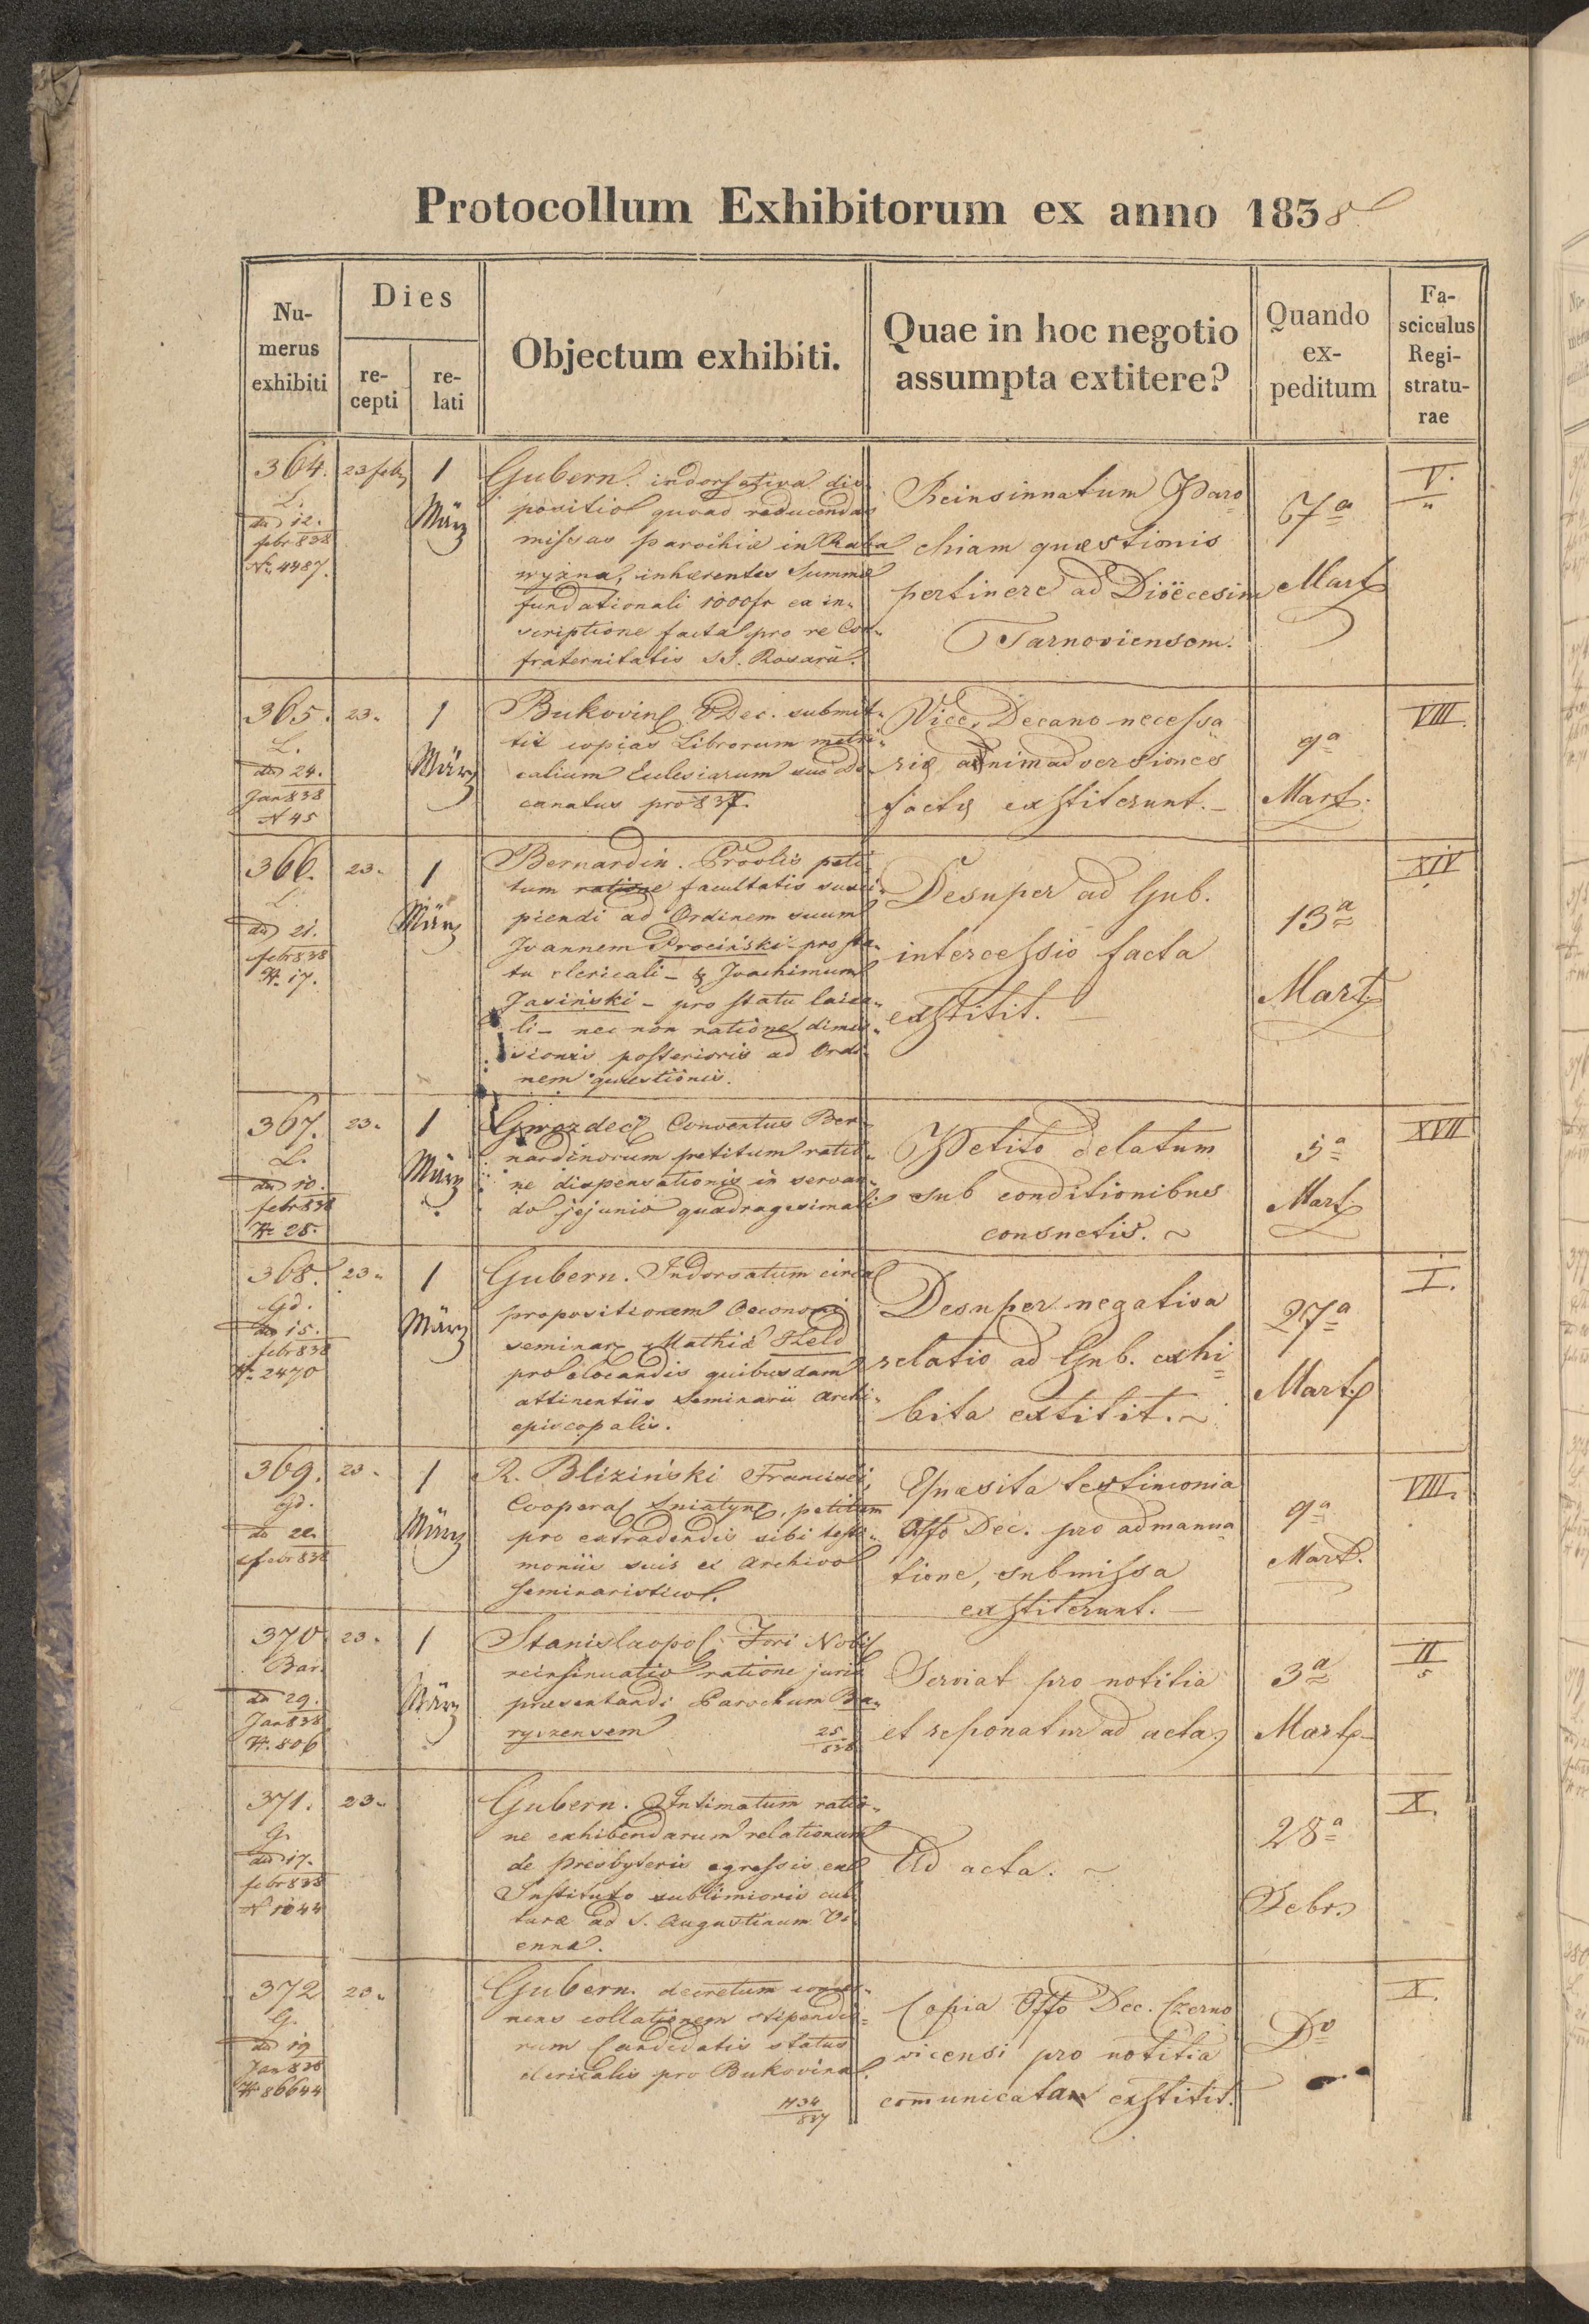 Protocollum Exhibitorum ex anno 1838
Nu-
merus
exhibiti
Dies
re-
cepti
re-
lati
Objectum exhibiti.
Quae in hoc negotio
assumpta extitere?
Quando
ex-
peditum
Fa-
sciculus
Regi-
stratu-
rae
364.
L.
dd 12.
febr 838
No. 4487.
23 feb
1
März
Gubern. indorsativa dis-
positio quoad reducendas
missas parochiæ in Raba
wyżna, inhærentes Summæ
fundationali 1000 fr ex in-
scriptione facta pro re Con-
fraternitatis SS. Rosarii.
Reinsinuatum Paro
chiam quæstionis
pertinere ad Diöecesim
Tarnoviensem.
7a
Mart
V.
365.
L.
dd 24.
Jan 838
N 45
23.
1
März
Bukovin VDec. submit-
tit copias Librorum metri-
calium Ecclesiarum sui de-
canatus pro 837.
Vice, Decano necessa
riæ animadversiones
factæ exstiterunt. –
9a
Mart.
VIII.
366.
L.
dd 21.
febr 838
N. 17.
23.
1
März
Bernardin. Provlis peti-
tum ratione facultatis susci-
piendi ad Ordinem suum
Joannem Prociński pro sta-
tu clericali – & Joachimum
Jasiński – pro statu laica-
li – nec non ratione dimis-
sionis posterioris ad Ordi-
nem quæstionis.
Desuper ad Gub.
intercessio facta
exstitit. –
13a
Mart.
XIV
367.
L.
dd 10.
febr 838
N. 28.
23.
1
März
Gwozdec Conventus Ber-
nardinorum petitum ratio-
ne dispensationis in servan-
do jejunio quadragesimali
Petito delatum
sub conditionibus
consuetis. ~
5a
Mart
XVII
368.
Gd.
dd 15.
febr 838
N. 2470
23.
1
März
Gubern. Indorsatum circa
propositionem Oeconomi
seminar Mathiæ Held
pro elocandis quibusdam
attinentiis Seminarii Archi-
episcopalis.
Desuper negativa
relatio ad Gub. exhi
bita extitit. ~
27a
Mart.
I.
369.
Gd.
dd 22.
febr 838
23.
1
März
R. Bliziński Francisci,
Cooper Sniatyn, petitum
pro extradendis sibi testi-
moniis suis ex Archivo
seminaristico.
Quæsita testimonia
Offo Dec. pro admanua
tione, submissa
exstiterunt. –
9a
Mart.
VIII.
370
Bar.
dd 29.
Jan 838
N. 806
23.
1
März
Stanislaopol. Fori Nobil
reinsinuatio ratione juris
præsentandi Parochum Ba-
ryszensem
25
838
Serviat pro notitia
et reponatur ad acta.
3a
Mart
II
5
371.
G.
dd 17.
febr 838
N 1044
23.
Gubern. Intimatum ratio-
ne exhibendarum relationum
de presbyteris egressis ex
Instituto sublimioris cul-
turæ ad S. Augustinum Vi-
ennæ.
Ad acta. ~
28a
Febr.
X.
372
G.
dd 19
Jan 838
N 86644
23.
Gubern. decretum concer-
nens collationem stipendio-
rum Candidatis status
clericalis pro Bukovina.
1134
837
Copia Offo Dec. Czerno
vicensi pro notitia
comunicata exstitit.
Do
X.